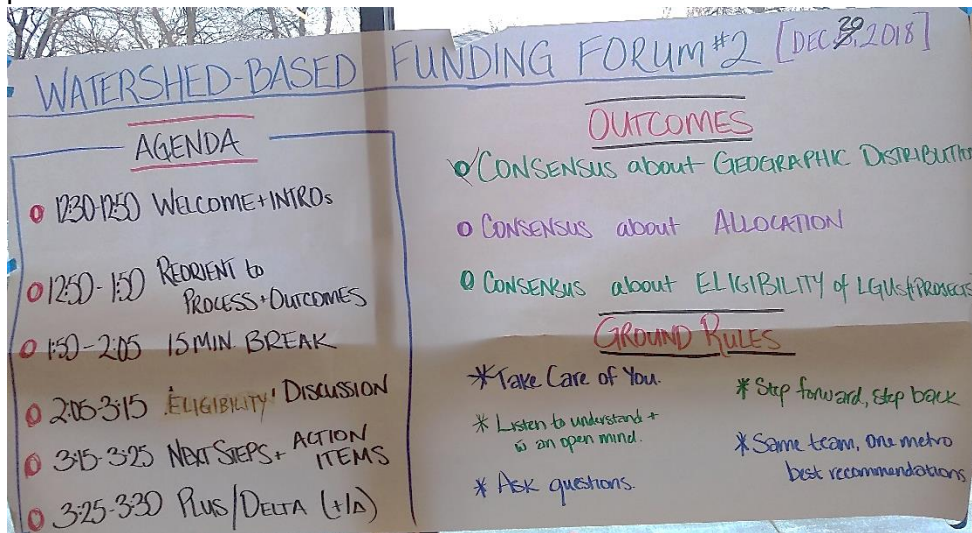 WATERSHED-BASED FUNDING FORUM #2 [DEC. 20, 2018]
AGENDA
o 12:30-12:50 WELCOME + INTROs
o 12:50-1:50 REORIENT to
PROCESS + OUTCOMES
o 1:50-2:05 15 MIN. BREAK
o 2:05-3:15 'ELIGIBILITY' DISCUSSION
o 3:15-3:25 NEXT STEPS + ACTION
ITEMS
o 3:25-3:30 PLUS/DELTA (+/Δ)
OUTCOMES
o CONSENSUS about GEOGRAPHIC DISTRIBUTIO
o CONSENSUS about ALLOCATION
o CONSENSUS about ELIGIBILITY of LGUs + PROJECTS
GROUND RULES
* Take Care of You.
* Listen to understand +
w an open mind.
* Ask questions.
* Step forward, step back
* Same team, one metro
best recommendations